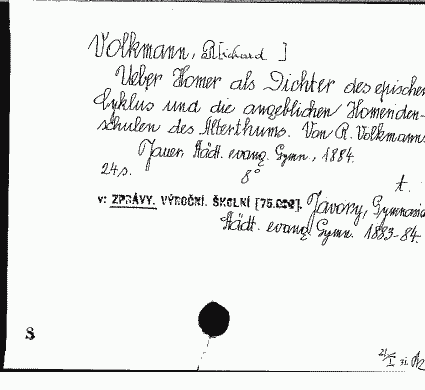 Volkmann, R[ichard ]
Ueber Homer als Dichter des epischen
Cyklus und die angeblichen Homeriden-
schulen des Alterthums. Von R. Volkmann.
Jauer, Städt. evang. Gymn., 1884.
24 s. 8°
t.
v: ZPRÁVY. VÝROČNÍ. ŠKOLNÍ [75.   ]. Javory, Gymnasia
Städt. evang. Gymn. 1883-84.
8